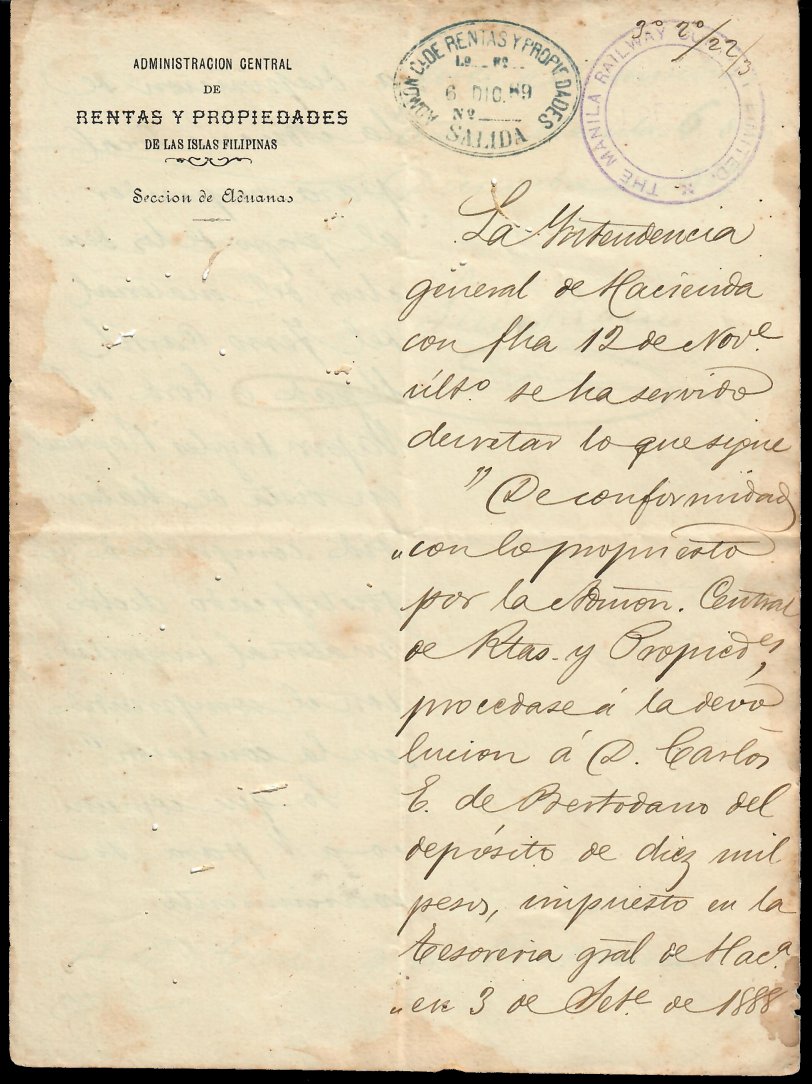 ADMINISTRACION CENTRAL
DE
RENTAS Y PROPIEDADES
DE LAS ISLAS FILIPINAS
Seccion de Aduanas
ADMON Cl. DE RENTAS Y PROPIEDADES
6 DIC. 89
Nº
SALIDA
THE MANILA RAILWAY LIMITED.
La Yntendencia
general de Hacienda
con fha 12 de Nove.
últo. se ha servido
decretar lo que sigue
" De conformidad
" con lo propuesto
por la Admon. Central
de Rtas. y Propiedes,
procedase á la devo
lucion á D. Carlos
E. de Bertodano del
depósito de diez mil
pesos, impuesto en la
Tesoreria gral de Haca.
" en 3 de Sete. de 1888